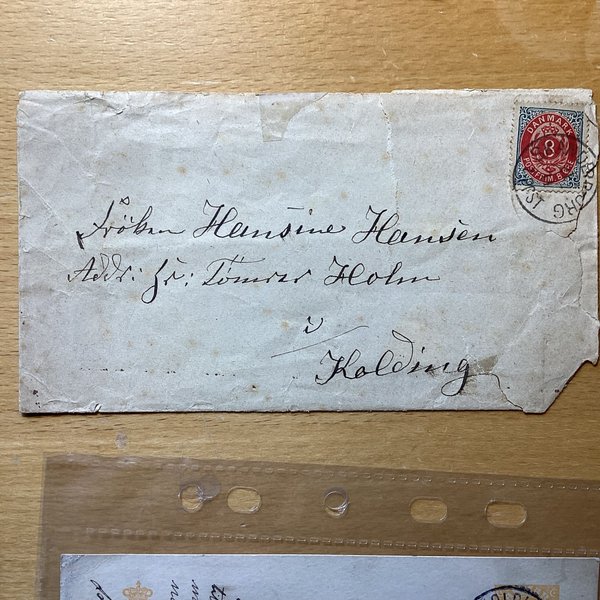 DANMARK
3
POSTFRIM BEGL
Fröken Hansine Hansen
Addr: Hr: Tömrer Holm
i
Kolding